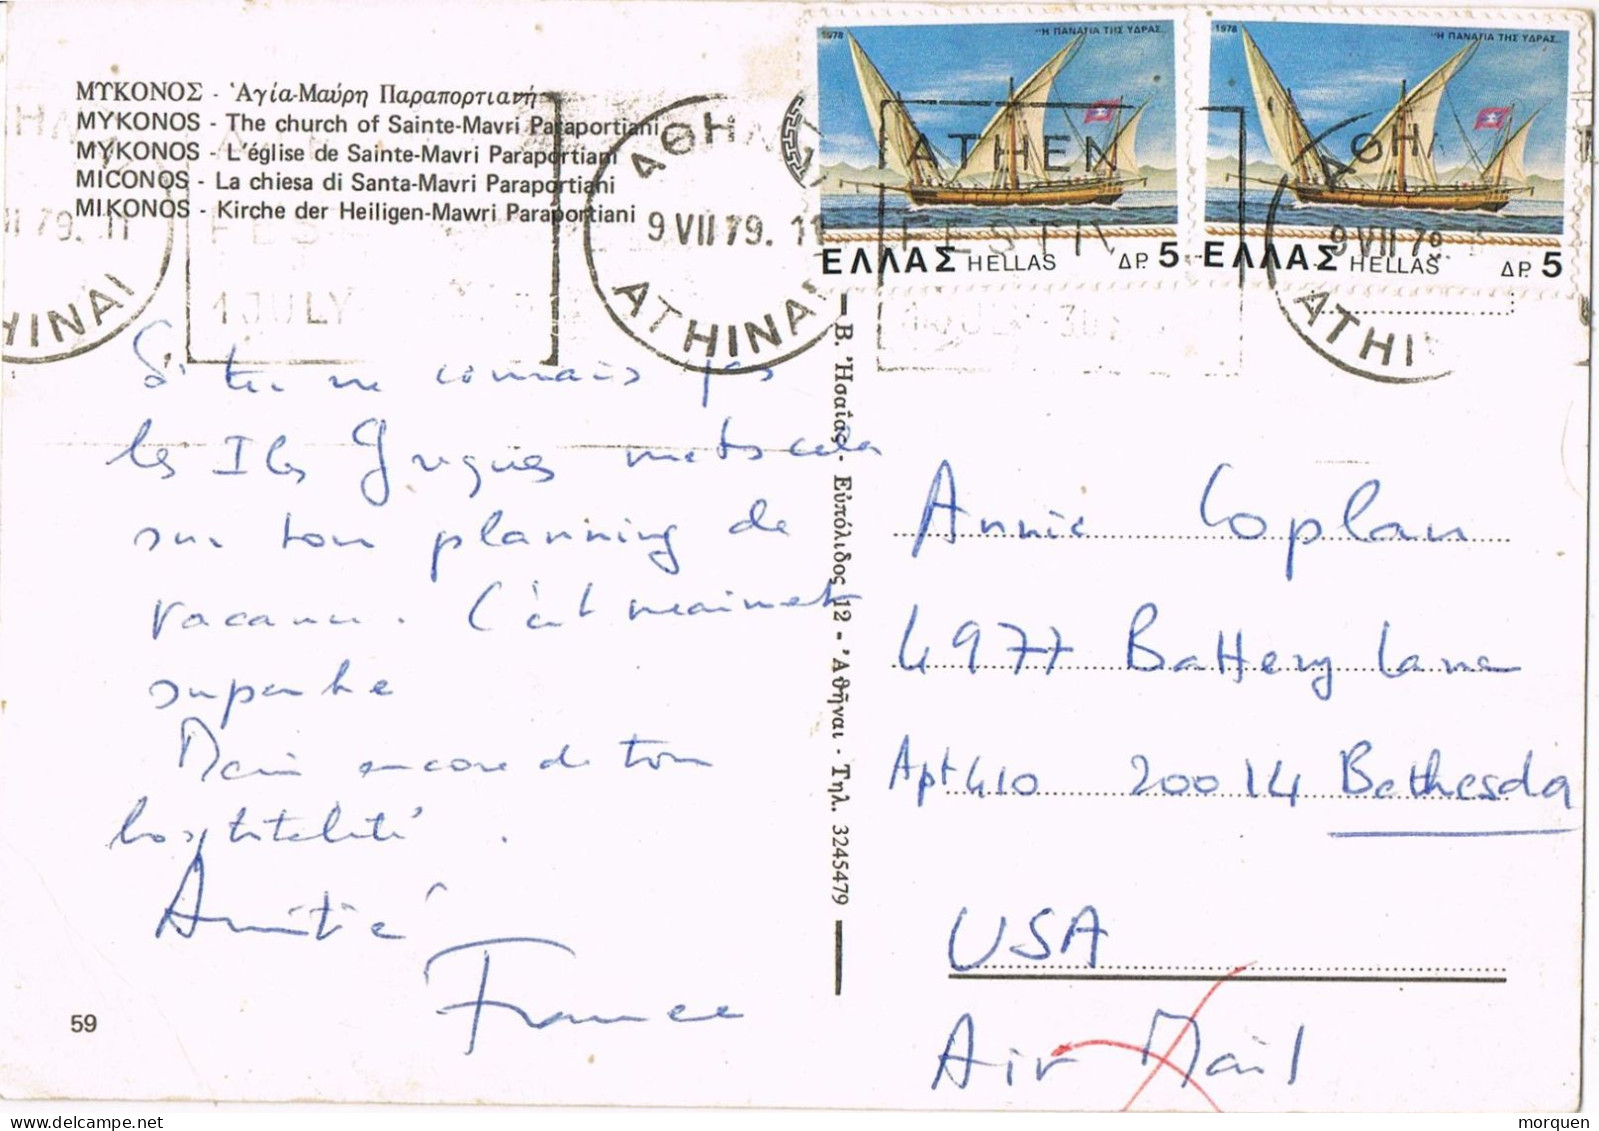 ΜΥΚΟΝΟΣ - Ἁγία-Μαύρη Παραπορτιανή
MYKONOS - The church of Sainte-Mavri Paraportiani
MYKONOS - L'église de Sainte-Mavri Paraportiani
MICONOS - La chiesa di Santa-Mavri Paraportiani
MIKONOS - Kirche der Heiligen-Mawri Paraportiani
1978 "Η ΠΑΝΑΓΙΑ ΤΗΣ ΥΔΡΑΣ"
ΕΛΛΑΣ HELLAS ΔΡ. 5
1978 "Η ΠΑΝΑΓΙΑ ΤΗΣ ΥΔΡΑΣ"
ΕΛΛΑΣ HELLAS ΔΡ. 5
ΑΘΗ
9 VII 79. 11
ATHINAI
ATHEN
FESTIV
1 JULY
VII 79. 11
HINAI
ΑΘΗ
9 VII 79
ATHI
Si tu ne connais pas
les Iles Grecques mets cela
sur ton planning de
vacances. C'est vraiment
superbe
Merci encore de ton
hospitalité.
Amitié
France
59
Β. Ἠσαΐας - Εὐπόλιδος 12 - Ἀθῆναι - Τηλ. 3245479
Annie Coplan
4977 Battery Lane
Apt 410 20014 Bethesda
USA
Air Mail
www.delcampe.net
morquen